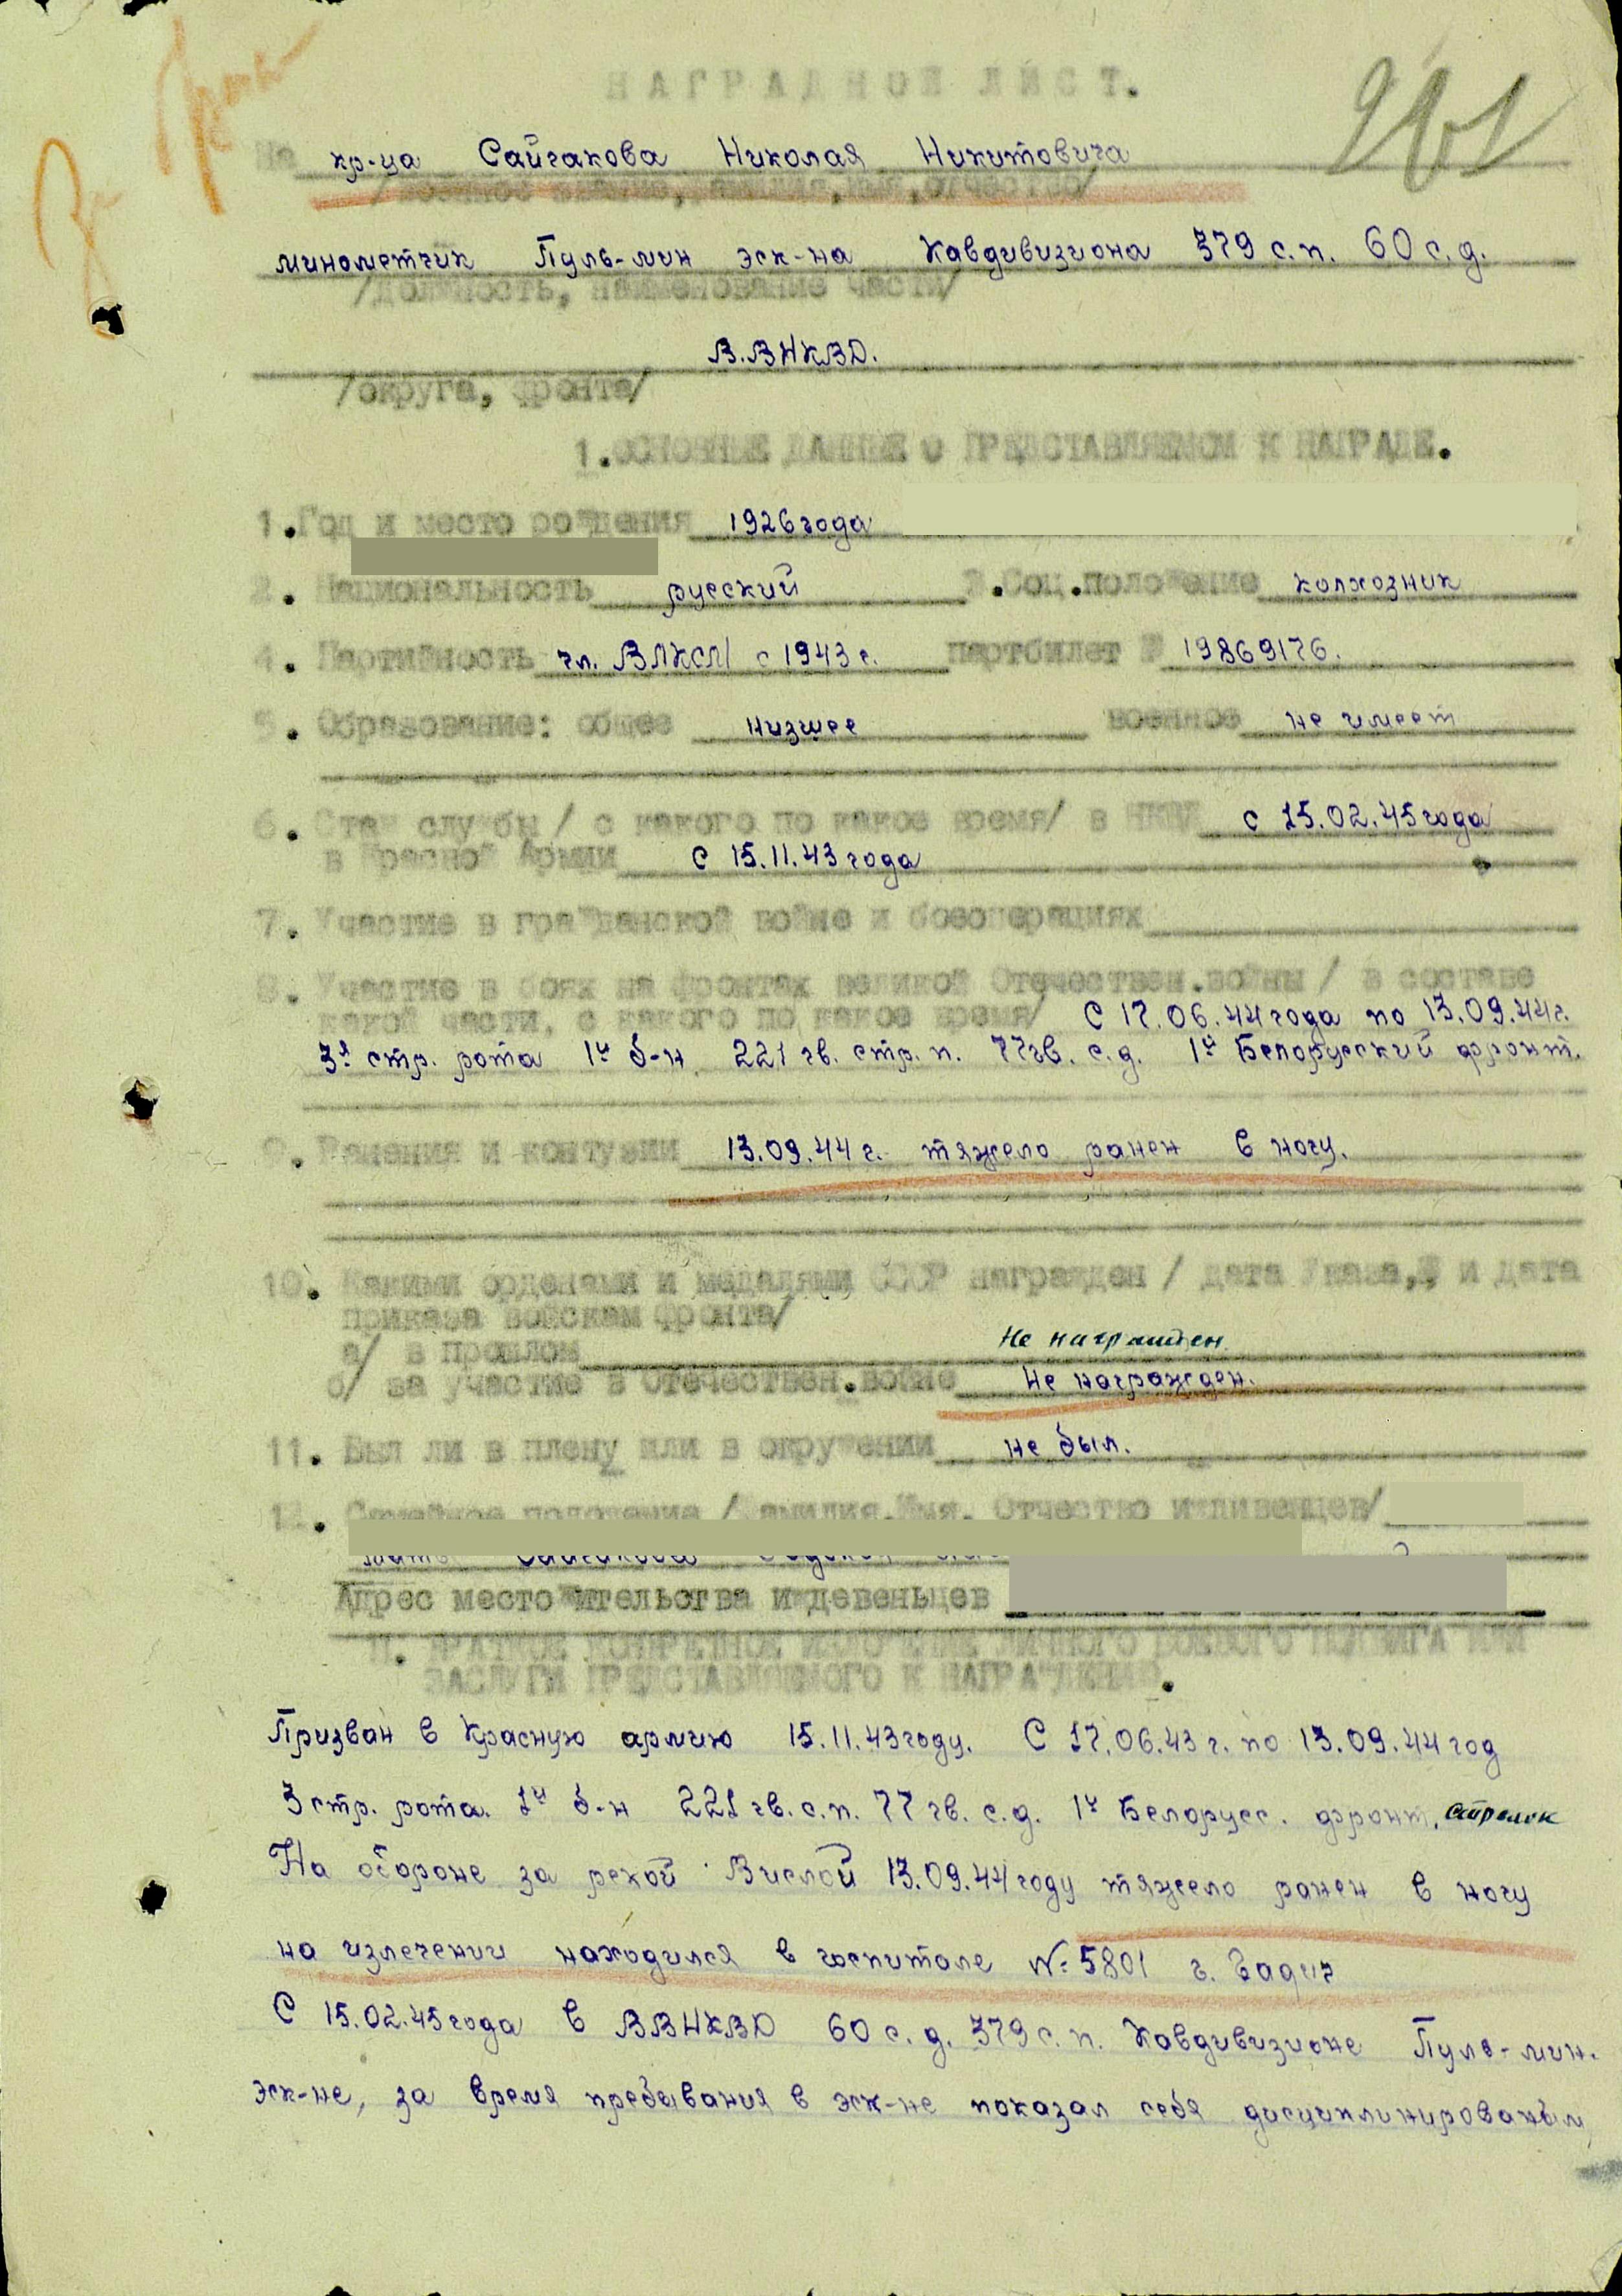 НАГРАДНОЙ ЛИСТ.
261
На кр-ца Сайгакова Николая Никитовича
/военное звание, фамилия, имя, отчество/
минометчик Пуль-мин эск-на Кавдивизиона 379 с.п. 60 с.д.
/должность, наименование части/
В.ВНКВД.
/округа, фронта/
1. ОСНОВНЫЕ ДАННЫЕ О ПРЕДСТАВЛЯЕМОМ К НАГРАДЕ.
1. Год и место рождения 1926 года
2. Национальность русский 3. Соц. положение колхозник
4. Партийность чл. ВЛКСМ с 1943 г. партбилет № 19869176.
5. Образование: общее низшее военное не имеет
6. Стаж службы / с какого по какое время/ в НКВД с 15.02.45 года
в Красной Армии с 15.11.43 года
7. Участие в гражданской войне и боеоперациях
8. Участие в боях на фронтах великой Отечествен. войны / в составе
какой части, с какого по какое время/ С 17.06.44 года по 13.09.44 г.
3я стр. рота 1й б-н 221 гв. стр. п. 77 гв. с.д. 1й Белорусский фронт.
9. Ранения и контузии 13.09.44 г. тяжело ранен в ногу.
10. Какими орденами и медалями СССР награжден / дата Указа, № и дата
приказа войскам фронта/
а/ в прошлом Не награжден
б/ за участие в Отечествен. войне Не награжден.
11. Был ли в плену или в окружении не был.
12. Семейное положение / Фамилия, Имя, Отчество иждивенцев/
Адрес местожительства иждевеньцев
П. КРАТКОЕ КОНКРЕТНОЕ ИЗЛОЖЕНИЕ ЛИЧНОГО БОЕВОГО ПОДВИГА ИЛИ
ЗАСЛУГИ ПРЕДСТАВЛЯЕМОГО К НАГРАЖДЕНИЮ.
Призван в Красную армию 15.11.43 году. С 17.06.43 г. по 13.09.44 год
3 стр. рота. 1й б-н 221 гв. с.п. 77 гв. с.д. 1й Белорусс. фронт, стрелок
На обороне за рекой Вислой 13.09.44 году тяжело ранен в ногу
на излечении находился в госпитале № 5801 г.
С 15.02.45 года в ВВНКВД 60 с.д. 379 с.п. Кавдивизионе Пуле-мин.
эск-не, за время пребывания в эск-не показал себя дисциплинированым